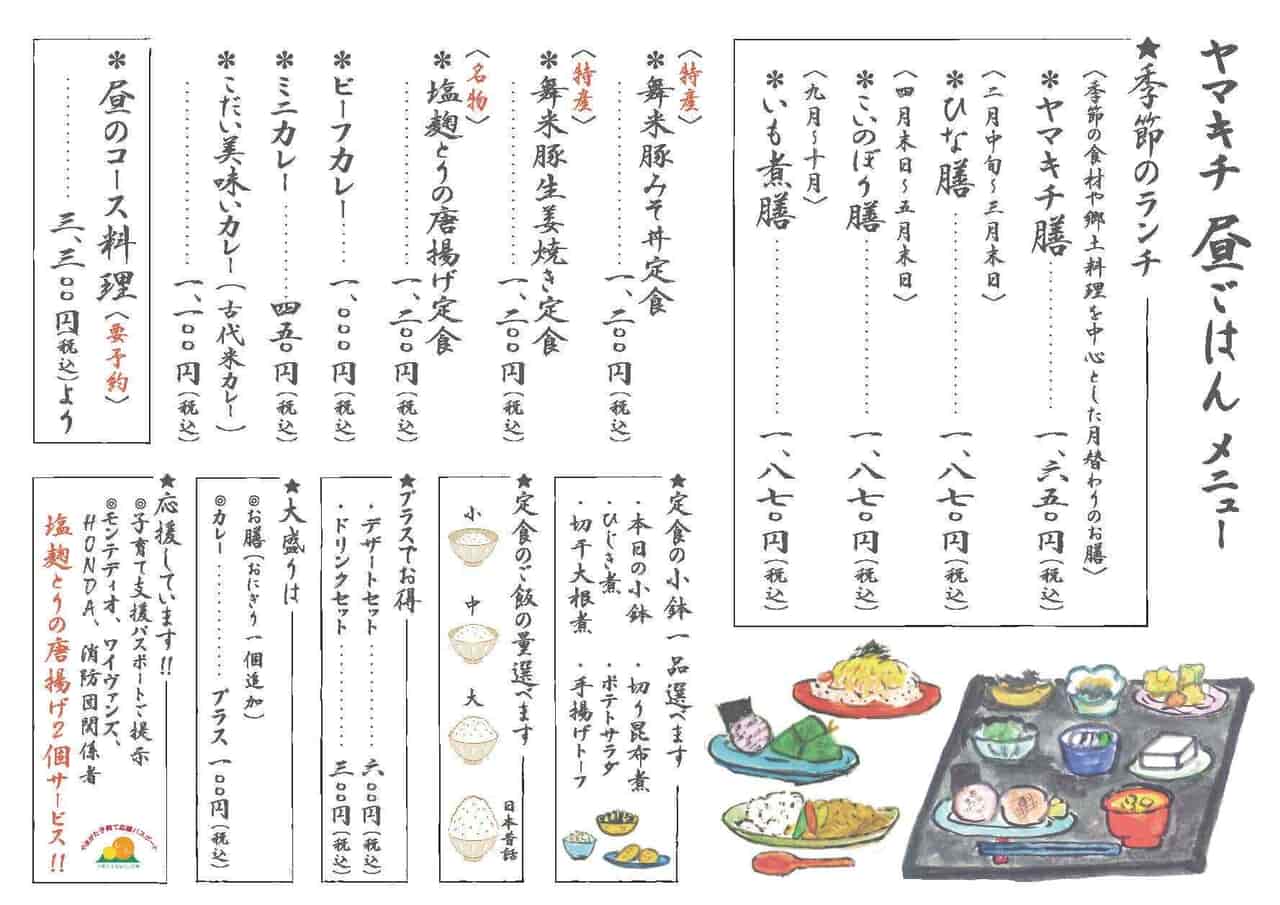 ヤマキチ 昼ごはん メニュー
★季節のランチ
〈季節の食材や郷土料理を中心とした月替わりのお膳〉
＊ヤマキチ膳……………一、六五〇円(税込)
〈二月中旬〜三月末日〉
＊ひな膳……………一、八七〇円(税込)
〈四月末日〜五月末日〉
＊こいのぼり膳……………一、八七〇円(税込)
〈九月〜十月〉
＊いも煮膳……………一、八七〇円(税込)
〈特産〉
＊舞米豚みそ丼定食
……………一、二〇〇円(税込)
〈特産〉
＊舞米豚生姜焼き定食
……………一、二〇〇円(税込)
〈名物〉
＊塩麹とりの唐揚げ定食
……………一、二〇〇円(税込)
＊ビーフカレー……一、〇〇〇円(税込)
＊ミニカレー………四五〇円(税込)
＊こだい美味いカレー(古代米カレー)
……………一、一〇〇円(税込)
＊昼のコース料理〈要予約〉
…………三、三〇〇円(税込)より
★定食の小鉢一品選べます
・本日の小鉢 ・切り昆布煮
・ひじき煮 ・ポテトサラダ
・切干大根煮 ・手揚げトーフ
★定食のご飯の量選べます
小
中
大
日本昔話
★プラスでお得
・デザートセット……………六〇〇円(税込)
・ドリンクセット……………三〇〇円(税込)
★大盛りは
◎お膳(おにぎり一個追加)
◎カレー……………プラス一〇〇円(税込)
★応援しています!!
◎子育て支援パスポートご提示
◎モンテディオ、ワイヴァンズ、
HONDA、消防団関係者
塩麹とりの唐揚げ2個サービス!!
やまがた子育て応援パスポート